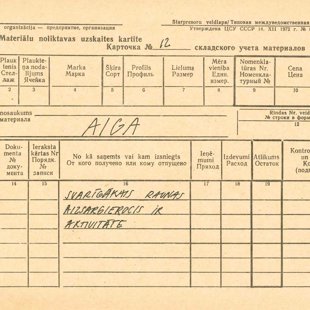 организация — предприятие, организация
Starpresoru veidlapa/Типовая междуведомственная
Утверждена ЦСУ СССР 14. XII 1972 г. №
Materiālu noliktavas uzskaites kartīte
Карточка № 12 складского учета материалов
Plaukta nodalījums Ячейка
Marka Марка
Šķira Сорт
Profils Профиль
Lielums Размер
Mēra vienība Един. измер.
Nomenklatūras Nr. Номенклатурный №
Cena Цена
2 3 4 5 6 7 8 9 10
nosaukums
материала
AIGA
Rindas Nr. veid
№ строки в форм
12
Dokumenta № документа
Ieraksta kārtas Nr Порядк. № записи
No kā saņemts vai kam izsniegts
От кого получено или кому отпущено
Ieņēmumi Приход
Izdevumi Расход
Atlikums Остаток
14 15 16 17 18 19
SVARĪGĀKAIS RAUNAS
AIZSARGIEROCIS IR
AKTIVITĀTE